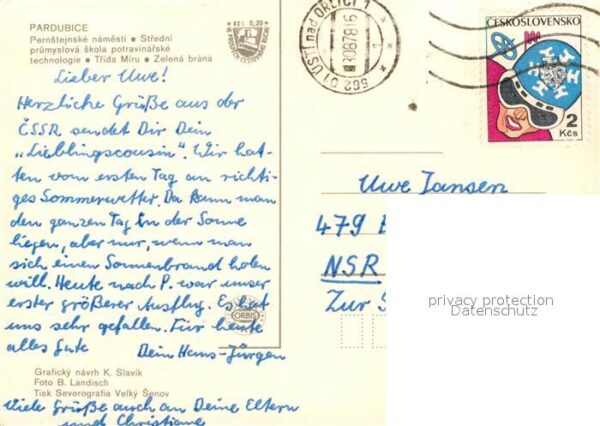 PARDUBICE
Pernštejnské náměstí ● Střední
průmyslová škola potravinářské
technologie ● Třída Míru ● Zelená brána
Kčs 0,20
Lieber Uwe!
Herzliche Grüße aus der
ČSSR sendet Dir Dein
„Lieblingscousin". Wir hat-
ten vom ersten Tag an richti-
ges Sommerwetter. Da kann man
den ganzen Tag in der Sonne
liegen, aber nur, wenn man
sich einen Sonnenbrand holen
will. Heute nach P. war unser
erster größerer Ausflug. Es hat
uns sehr gefallen. Für heute
alles Gute
Dein Hans-Jürgen
ORBIS
Grafický návrh K. Slavík
Foto B. Landisch
Tisk Severografia Velký Šenov
Viele Grüße auch an Deine Eltern
und Christiane
562 01 ÚSTÍ nad ORLICÍ 1
ČESKOSLOVENSKO
2
Kčs
Uwe Jansen
479
NSR
Zur
privacy protection
Datenschutz